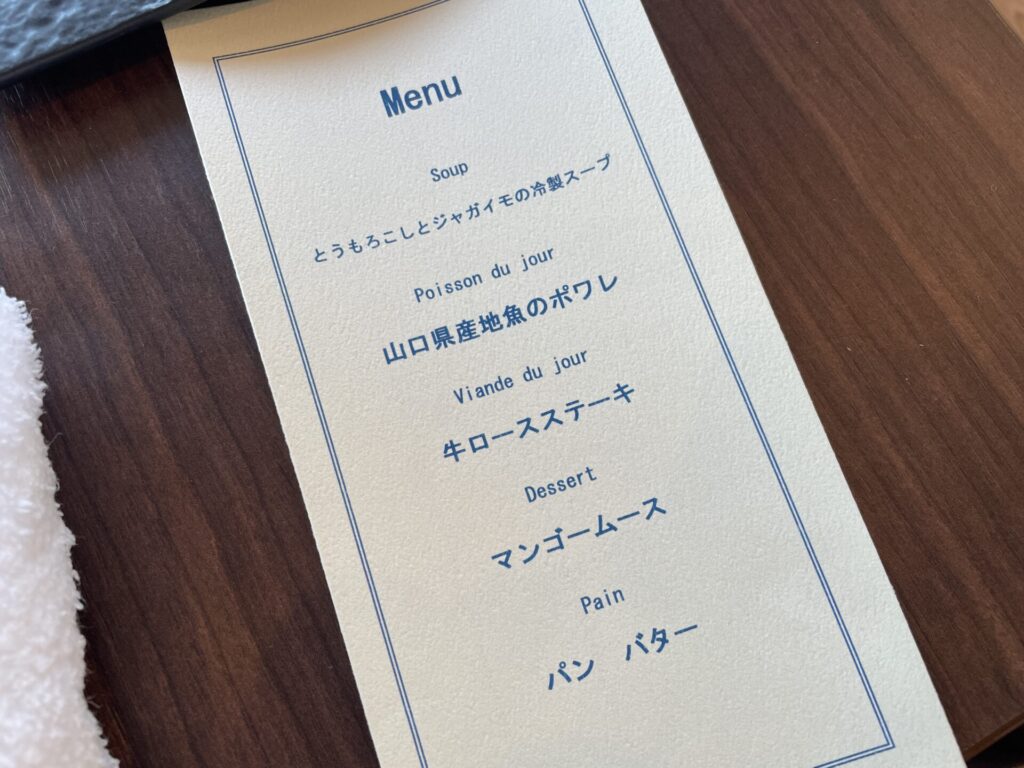 Menu
Soup
とうもろこしとジャガイモの冷製スープ
Poisson du jour
山口県産地魚のポワレ
Viande du jour
牛ロースステーキ
Dessert
マンゴームース
Pain
パン　バター